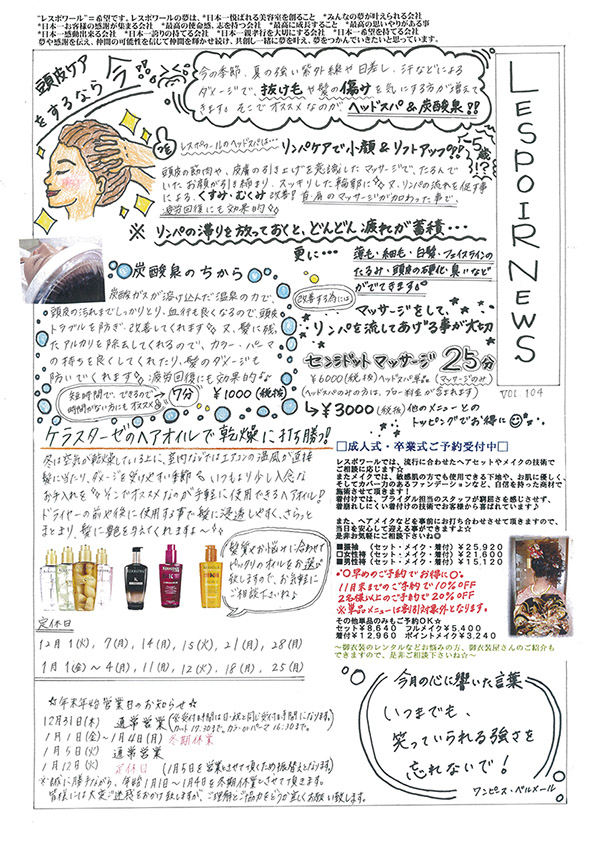 "レスポワール"=希望です。レスポワールの夢は、*日本一悦ばれる美容室を創ること *みんなの夢が叶えられる会社
*日本一お客様の感謝が集まる会社 *最高の使命感、志を持つ会社 *最高に成長すること *最高の思いやりがある事
*日本一感動出来る会社 *日本一誇りの持てる会社 *日本一親孝行を大切にする会社 *日本一希望を持てる会社
夢や感謝を伝え、仲間の可能性を信じて仲間を輝かせ続け、共創し一緒に夢を叶え、夢をつかんでいきたいと思っています。
頭皮ケアをするなら今!!
今の季節、夏の強い紫外線や日差し、汗などによる
ダメージで、抜け毛や髪の傷みを気にする方が増えて
きます。そこでオススメなのが、ヘッドスパ&炭酸泉!!
LESPOIR NEWS
VOl.104
レスポワールのヘッドスパは…
リンパケアで小顔&リフトアップ!!
頭皮の筋肉や、皮膚の引き上げを意識したマッサージで、たるんで
いたお顔が引き締まり、スッキリした輪郭に 又、リンパの流れを促す事
による、くすみ・むくみ改善!首・肩のマッサージが加わった事で、
疲労回復にも効果的
※リンパの滞りを放っておくと、どんどん疲れが蓄積…
更に…
薄毛・細毛・白髪・フェイスラインの
たるみ・頭皮の硬化・臭いなど
がでてきます
炭酸泉のちから
炭酸ガスが溶け込んだ温泉の力で、
頭皮の汚れまでしっかりとり、血行も良くなるので、頭皮
トラブルを防ぎ、改善してくれます 又、髪に残っ
たアルカリを除去してくれるので、カラー・パーマ
の持ちを良くしてくれたり、髪のダメージも
防いでくれます 疲労回復にも効果的♪
短時間で、できるので
時間がない方にもオススメ
7分 ¥1000(税抜)
改善する為には
マッサージをして、
リンパを流してあげる事が大切
センシドットマッサージ 25分
¥6000(税抜)ヘッドスパ単品(マッサージのみ)
(ヘッドスパのみの方は、ブロー料金が含まれます)
↳¥3000(税抜)他のメニューとの
トッピングでお得に
ケラスターゼのヘアオイルで乾燥に打ち勝つ!!
冬は空気が乾燥している上に、室内などではエアコンの温風が直接
髪に当たり、ダメージを受けやすい季節 いつもより少し入念な
お手入れを そこでオススメなのが手軽に使用できるヘアオイル!
ドライヤーの前や後に使用する事で髪に浸透しやすく、さらっと
まとまり、髪に艶を与えてくれますよ~
髪質やお悩みに合わせて
ピッタリのオイルをお選び
致しますので、お気軽に
ご相談下さいね♪
□成人式・卒業式ご予約受付中□
レスポワールでは、流行に合わせたヘアセットやメイクの技術で
ご相談に応じます☆
またメイクでは、敏感肌の方でも使用できる下地や、お肌に優しく、
そしてカバー力のあるファンデーションなど、自信を持った商材で
施術させて頂きます!
着付けでは、ブライダル担当のスタッフが窮屈さを感じさせず、
着崩れしにくい着付けの技術でお客様から喜ばれています♪
また、ヘアメイクなどを事前にお打ち合わせさせて頂きますので、
当日を安心して迎える事ができますよ☆
是非お気軽にご相談下さいね◎
■振袖 (セット・メイク・着付)¥25,920
□女性袴(セット・メイク・着付)¥21,600
■男性袴(セット・メイク・着付)¥15,120
○早めのご予約でお得に○
11月末までのご予約で10%OFF
2名様以上のご予約で20%OFF
※単品メニューは割引対象外となります。
その他単品のみもご予約OK☆
セット¥8,640 フルメイク¥5,400
着付¥12,960 ポイントメイク¥3,240
~御衣裳のレンタルなどお悩みの方、御衣装屋さんのご紹介も
できますので、是非ご相談下さいね☆~
定休日
12月1(火)、7(月)、14(月)、15(火)、21(月)、28(月)
1月1(金)~4(月)、11(月)、12(火)、18(月)、25(月)
☆年末年始営業日のお知らせ☆
12月31日(木) 通常営業
(受付時間は日・祝と同じ受付時間になります。
カット17:30まで。カラー・パーマ16:30まで。)
1月1日(金)~1月4日(月)冬期休業
1月5日(火) 通常営業
1月12日(火) 定休日(1月5日を営業させて頂くため振替えとなります)
※誠に勝手ながら、年始1月1日~1月4日を冬期休業とさせて頂きます。
皆様には大変ご迷惑をおかけ致しますが、ご理解とご協力をどうか宜しくお願い致します。
今月の心に響いた言葉
いつまでも、
笑っていられる強さを
忘れないで!
ワンピース・ベルメール